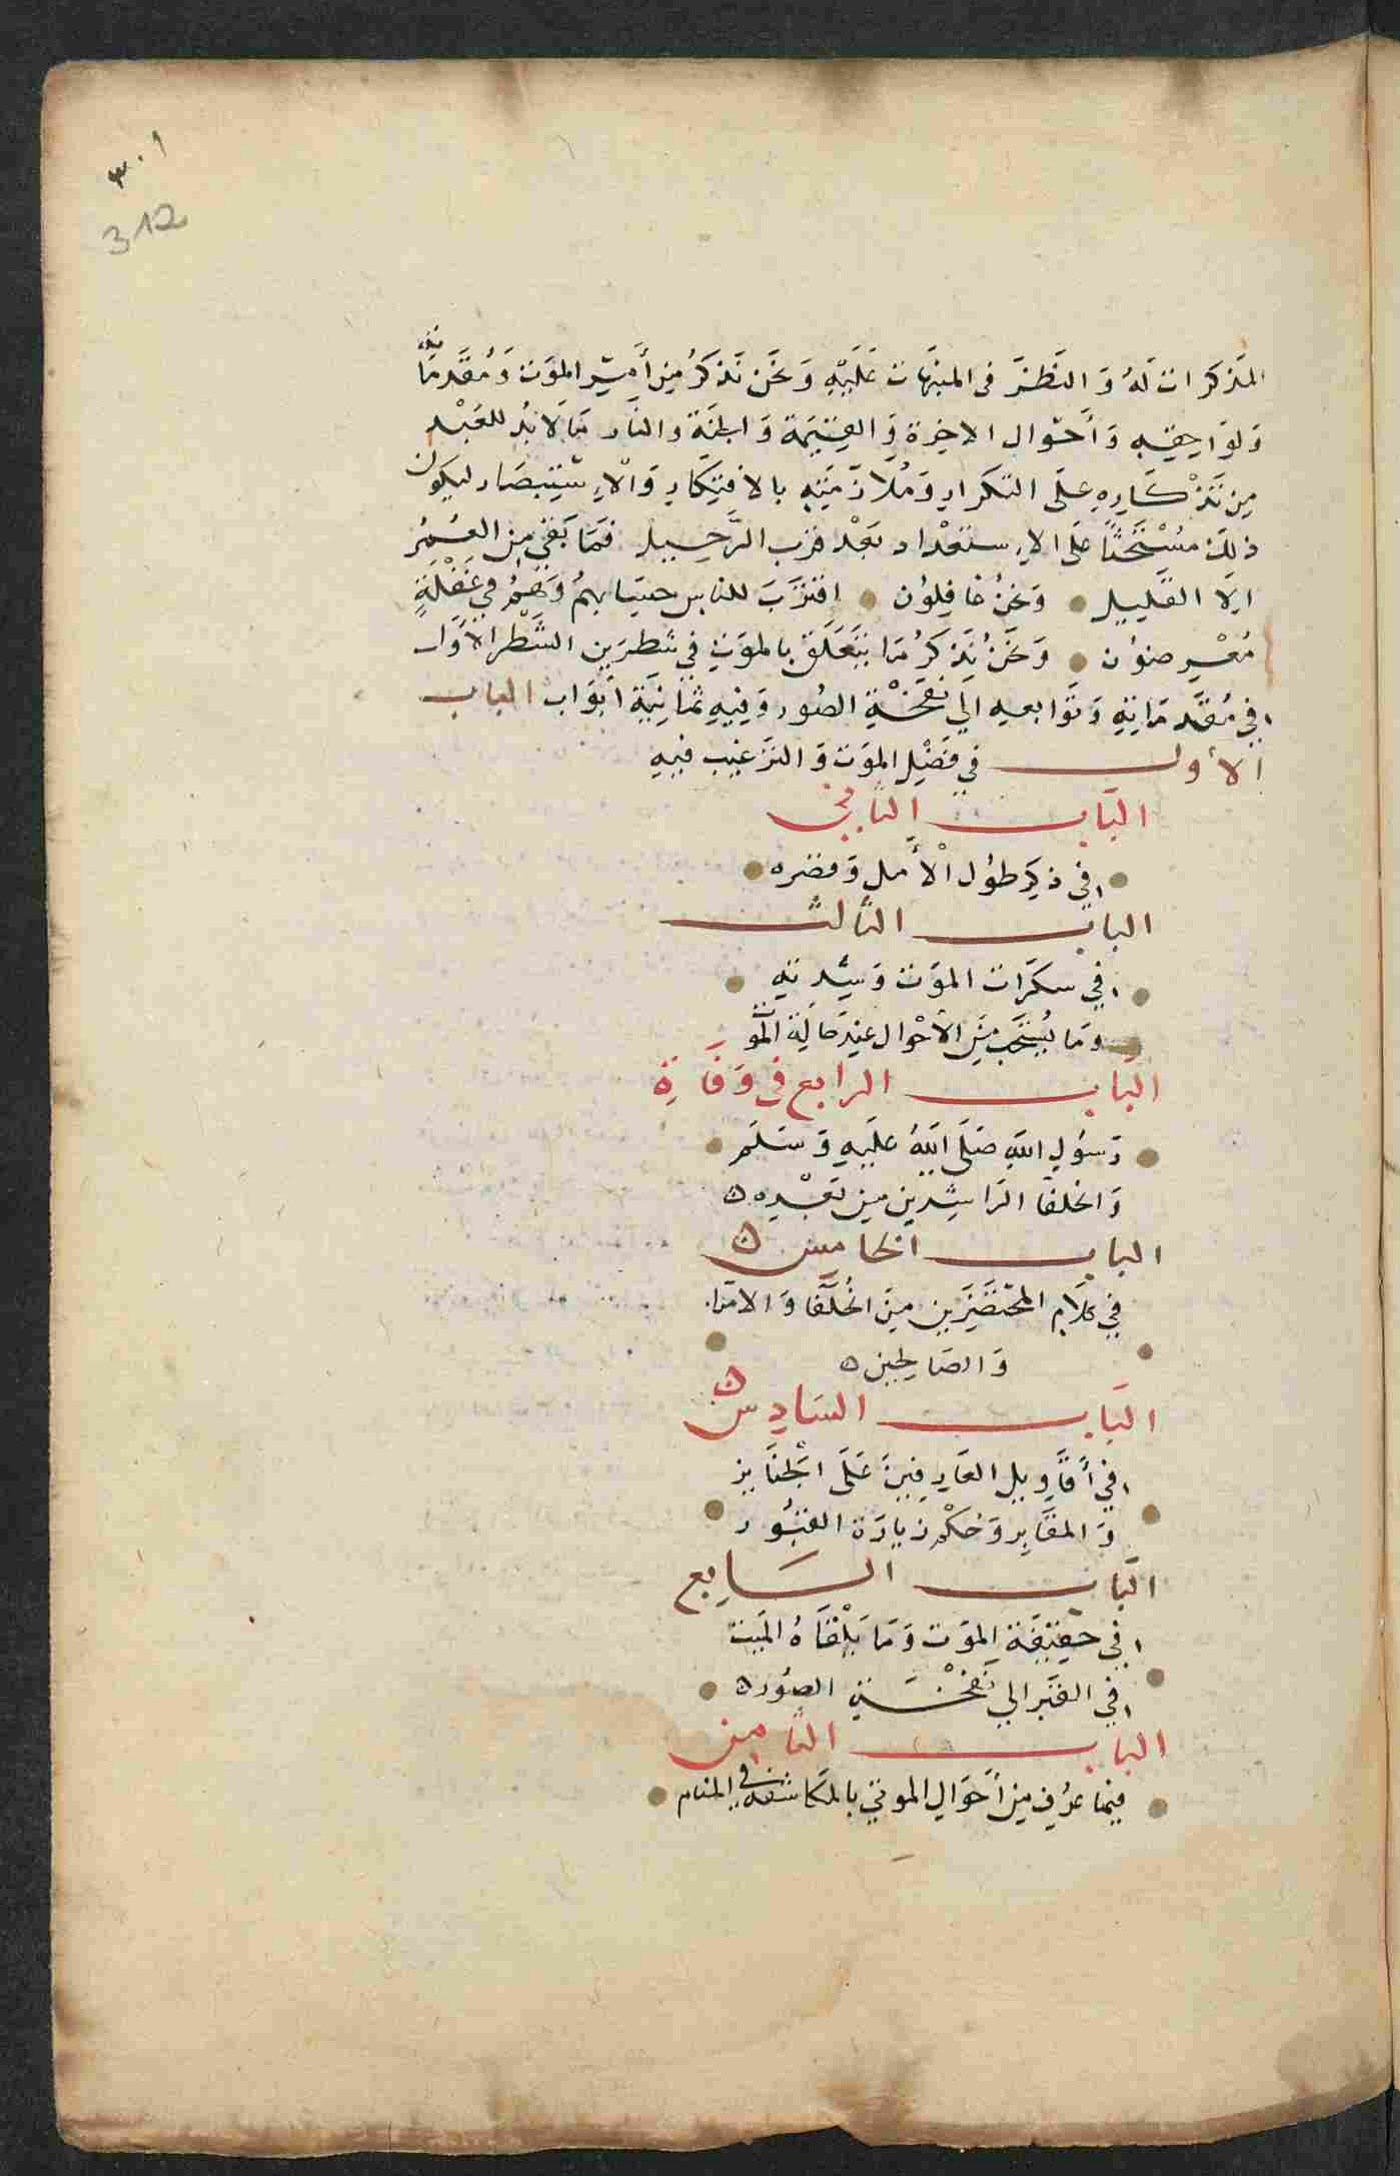 ٣٠١
312
المذكرات لَهُ وَ النَظرَ فى المنبّهات عَلَيْهِ وَ نَحَن نَذكَرُ مِن أَمْرِ الموَت وَ مُقَدِمَاتِه
وَ لوَاحِقِهِ وَ أَحْوال الاخِرة وَ القِيَمة وَ الجنَة وَ النار مَا لَا بُد للعَبْد
مِن تَذْكَارِهِ عِلَى التكَرارِ وَ مُلَازَمَتِهِ بالافتِكَارِ وَ الْاِسْتِبصَار ليَكُون
ذلِكَ مُسْتَحَثًا عَلى الاِستعْدادِ بَعْد قرب الرَّحِيل فمَا بَقِي مِن العُمُرِ
اِلَا القَلِيلِ وَ نَحْنُ غافِلوُن اقترَبَ للناسِ حسَابهمُ وَ هُمُ في غَفْلَةٍ
مُعْرِضوُن وَ نَحَنُ نَذكرُ مَا يتَعَلَق بالموَتِ فِي شَطرَين الشَّطر الأوَل
فِي مُقَدِمَاتِهِ وَ تَوَابعِهِ اِلَي نَفْخَةِ الصُور وَ فِيهِ ثمَانِيَةِ ابْوَاب الباب
الأول في فَضْلِ الموَت وَ الترَغيب فيهِ
البَاب الثاني
فِي ذِكِر طوُل الْأَمل وَ قصره
الباب الثالث
فِي سكَرَات الموَت وَ شِدتهِ
وَ مَا يُسْتَحَب مِنَ الأَحْوال عِندَ حالَة الموَت
البَاب الرابع في وَفَاة
رَسوُلِ اللهِ صَلَى اللهُ عليَهِ وَ سَلَم
وَ الخلفا الرَاشِدين مِن بَعْدِه
الباب الخامس
فِي كلَام المحتضَرِين مِنَ الخُلَفَا وَ الامَرا
وَ الصَالحِين
البَاب السَادِس
فِي أَقَاوِيل العَارِفِينَ عَلَى الجَنَايز
وَ المقَابر وَ حُكم زِيارَة القبُور
البَاب السَابع
فِي حقِيقَة الموَت وَ مَا يَلْقَاهُ الميَت
فِي القبَر الي نَفخَةِ الصُور
البَاب الثامِن
فيمَا عرُف مِن أحَوَالِ الموتي بالمكَاشفه في المنام